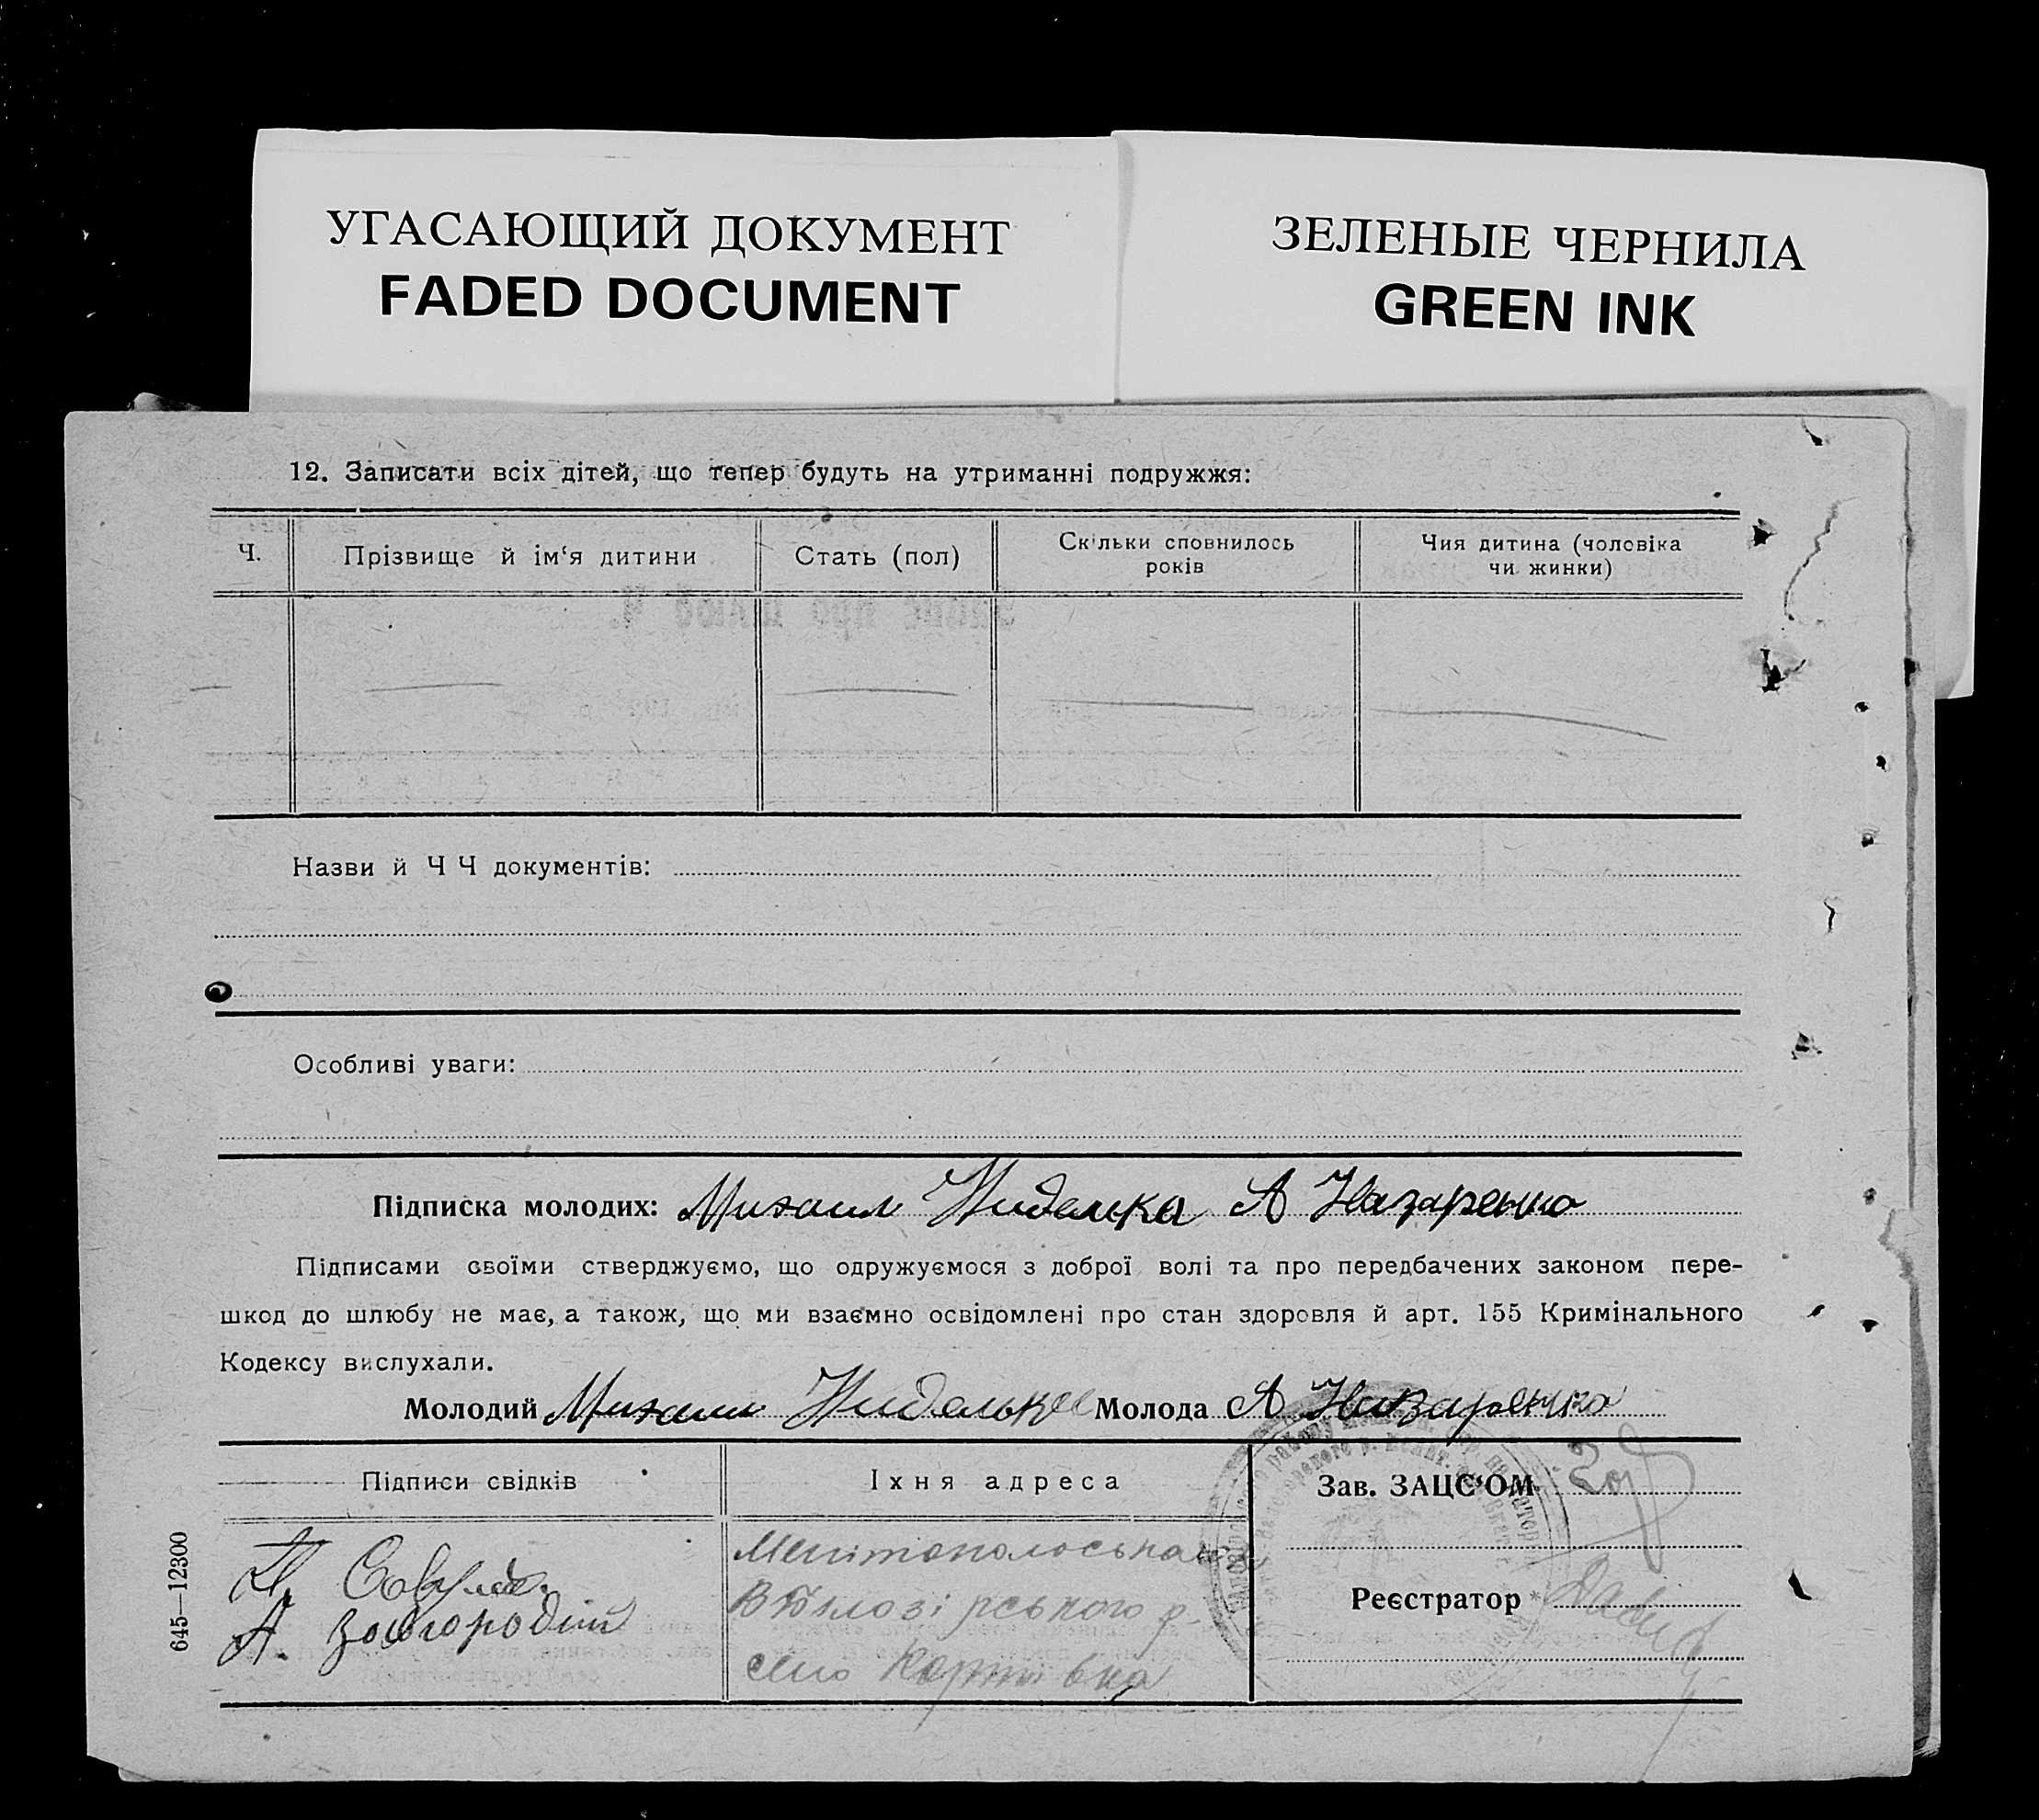 УГАСАЮЩИЙ ДОКУМЕНТ
FADED DOCUMENT
ЗЕЛЕНЫЕ ЧЕРНИЛА
GREEN INK
12. Записати всіх дітей, що тепер будуть на утриманні подружжя:
Ч.
Прізвище й ім‘я дитини
Стать (пол)
Скільки сповнилось
років
Чия дитина (чоловіка
чи жинки)
Назви й Ч Ч документів:
Особливі уваги:
Підписка молодих: Михаил А Назаренко
Підписами своїми стверджуємо, що одружуємося з доброї волі та про передбачених законом пере-
шкод до шлюбу не має, а також, що ми взаємно освідомлені про стан здоровля й арт. 155 Кримінального
Кодексу вислухали.
Молодий Михаил Молода А Назаренко
Підписи свідків
Їхня адреса
Зав. ЗАЦС‘ОМ
Реєстратор
645—12300